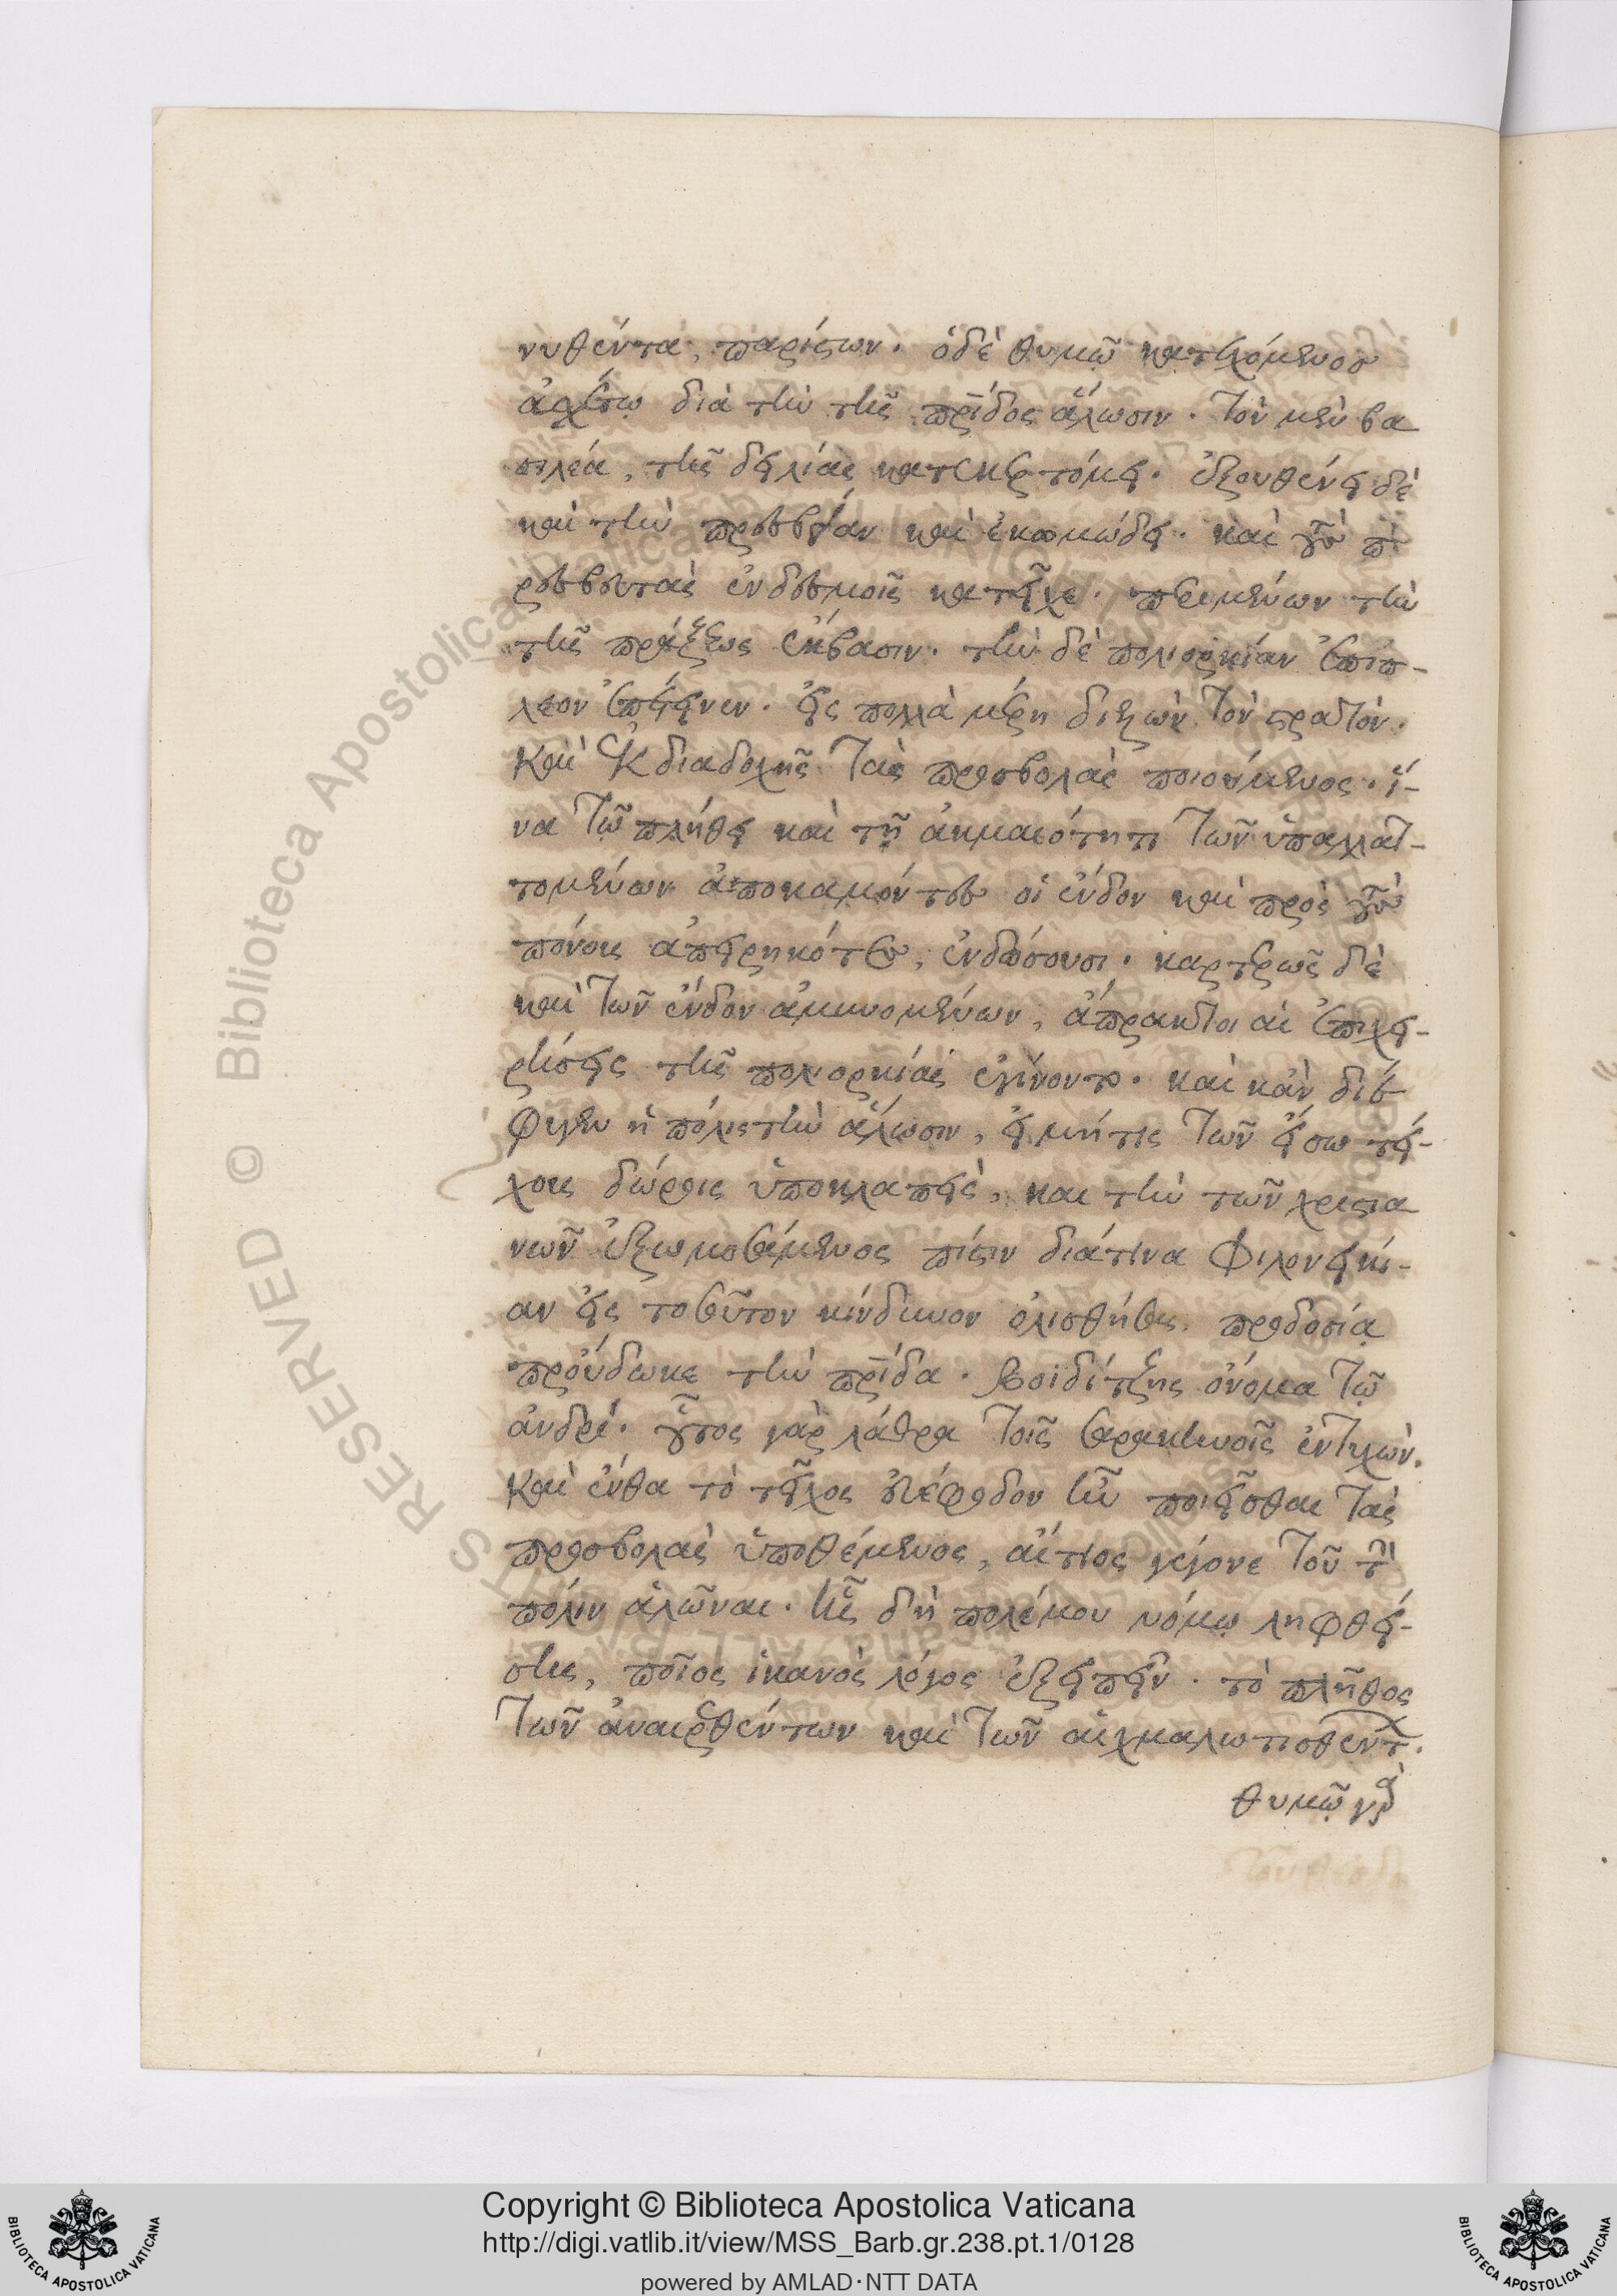 νυθέντα, παρίστων. ὁ δὲ θυμῷ κατεχόμενος
ἀσχέτῳ διὰ τὴν τῆς πρίδος ἅλωσιν. τὸν μὲν βα
σιλέα, τῆς δειλίας κατεκερτόμει. ἐξουθένει δὲ
καὶ τὴν πρεσβείαν καὶ ἐκωμώδει. καὶ τοὺς π
ρεσβευτὰς ἐν δεσμοῖς κατεῖχε. περιμένων τὴν
τῆς πράξεως ἔκβασιν. τὴν δὲ πολιορκίαν ἐπιπ-
λεον ἐπέτεινεν. εἰς πολλὰ μέρη διελὼν τὸν στρατόν.
καὶ ἐκ διαδοχῆς τὰς προσβολὰς ποιούμενος. ἵ-
να τῷ πλήθει καὶ τῇ ἀκμαιότητι τῶν ὑπαλλατ-
τομένων ἀποκαμόντες οἱ ἔνδον καὶ πρὸς τοὺς
πόνους ἀπειρηκότες, ἐνδώσουσι. καρτερῶς δὲ
καὶ τῶν ἔνδον ἀμυνομένων, ἄπρακτοι αἱ ἐπιχει-
ρήσεις τῆς πολιορκίας ἐγίνοντο. καὶ κἂν διέ
φυγεν ἡ πόλις τὴν ἅλωσιν, εἰ μή τις τῶν εἴσω τεί-
χους δώροις ὑποκλαπεὶς, και τὴν τῶν χριστια
νῶν ἐξωμοσάμενος πίστιν διά τινα φιλονεικί-
αν εἰς τοσοῦτον κίνδυνον ὀλισθήσας, προδοσίᾳ
προύδωκε τὴν πρίδα. Βοϊδίτζης ὄνομα τῷ
ἀνδρί. οὗτος γὰρ λάθρα τοῖς σαρακηνοῖς ἐντυχὼν.
καὶ ἔνθα τὸ τεῖχος εὐέφοδον ἦν ποιεῖσθαι τὰς
προσβολὰς ὑποθέμενος, αἴτιος γέγονε τοῦ τὴν
πόλιν ἁλῶναι. ἧς δὴ πολέμου νόμῳ ληφθεί-
σης, ποῖος ἱκανὸς λόγος ἐξειπεῖν. τὸ πλῆθος
τῶν ἀναιρεθέντων καὶ τῶν αἰχμαλωτισθέντ.
θυμῷ γὰρ
Copyright © Biblioteca Apostolica Vaticana
http://digi.vatlib.it/view/MSS_Barb.gr.238.pt.1/0128
powered by AMLAD·NTT DATA